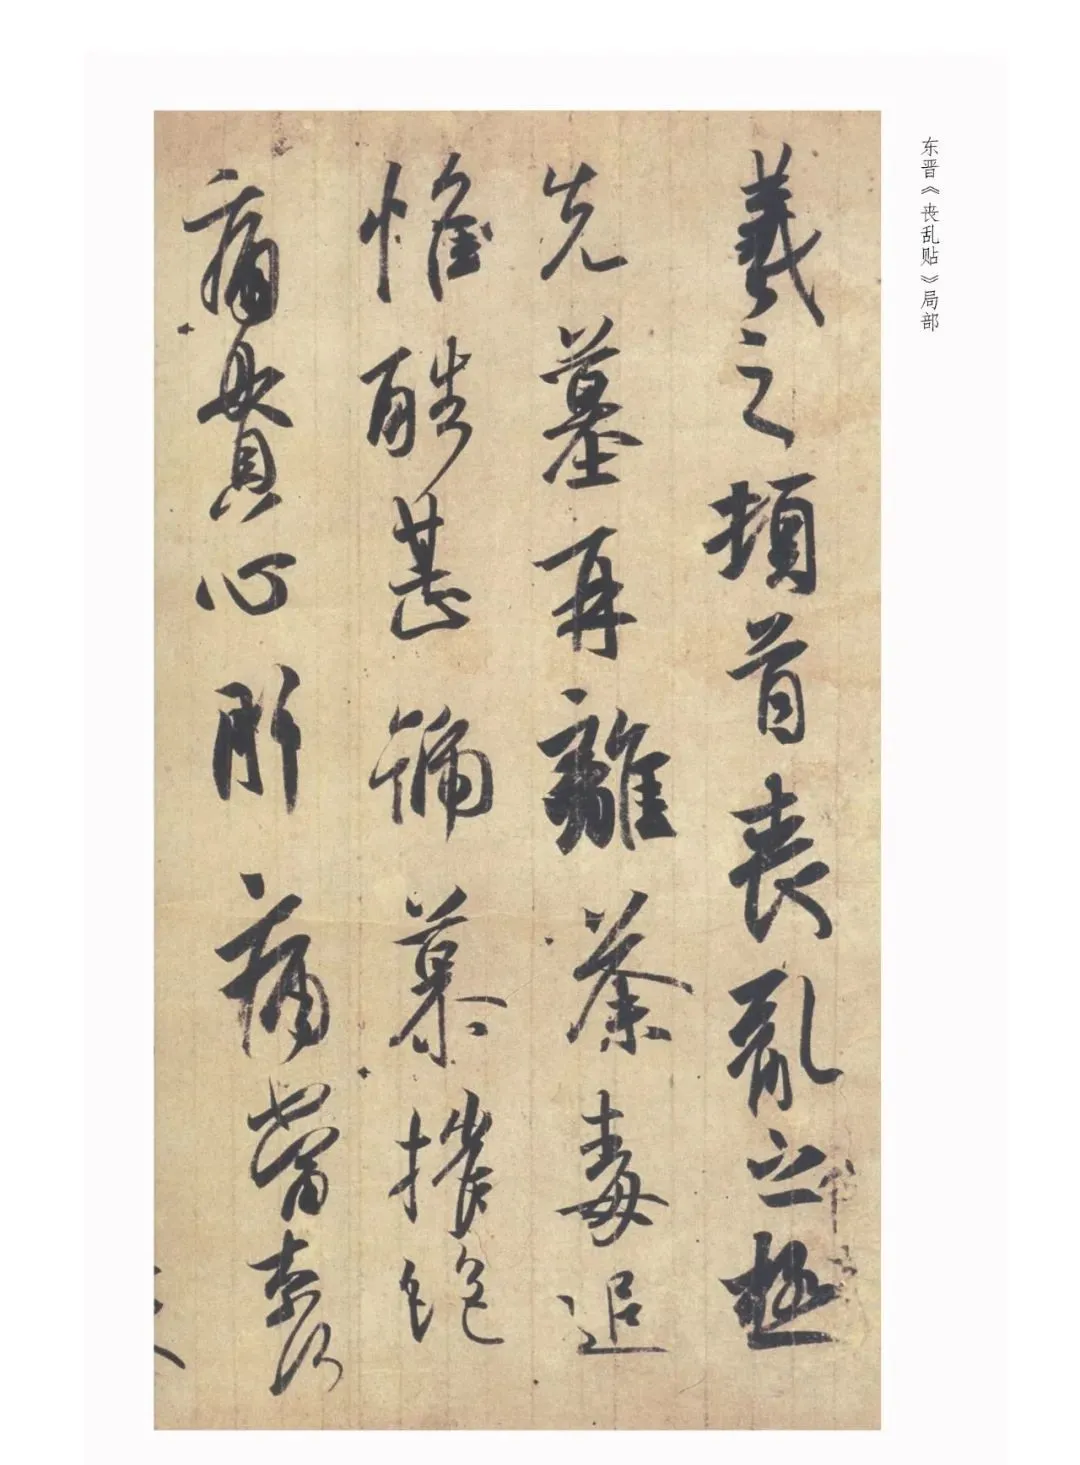 东晋《丧乱贴》局部
羲之頓首喪亂之極
先墓再離荼毒追
惟酷甚號慕摧絕
痛貫心肝痛當奈何